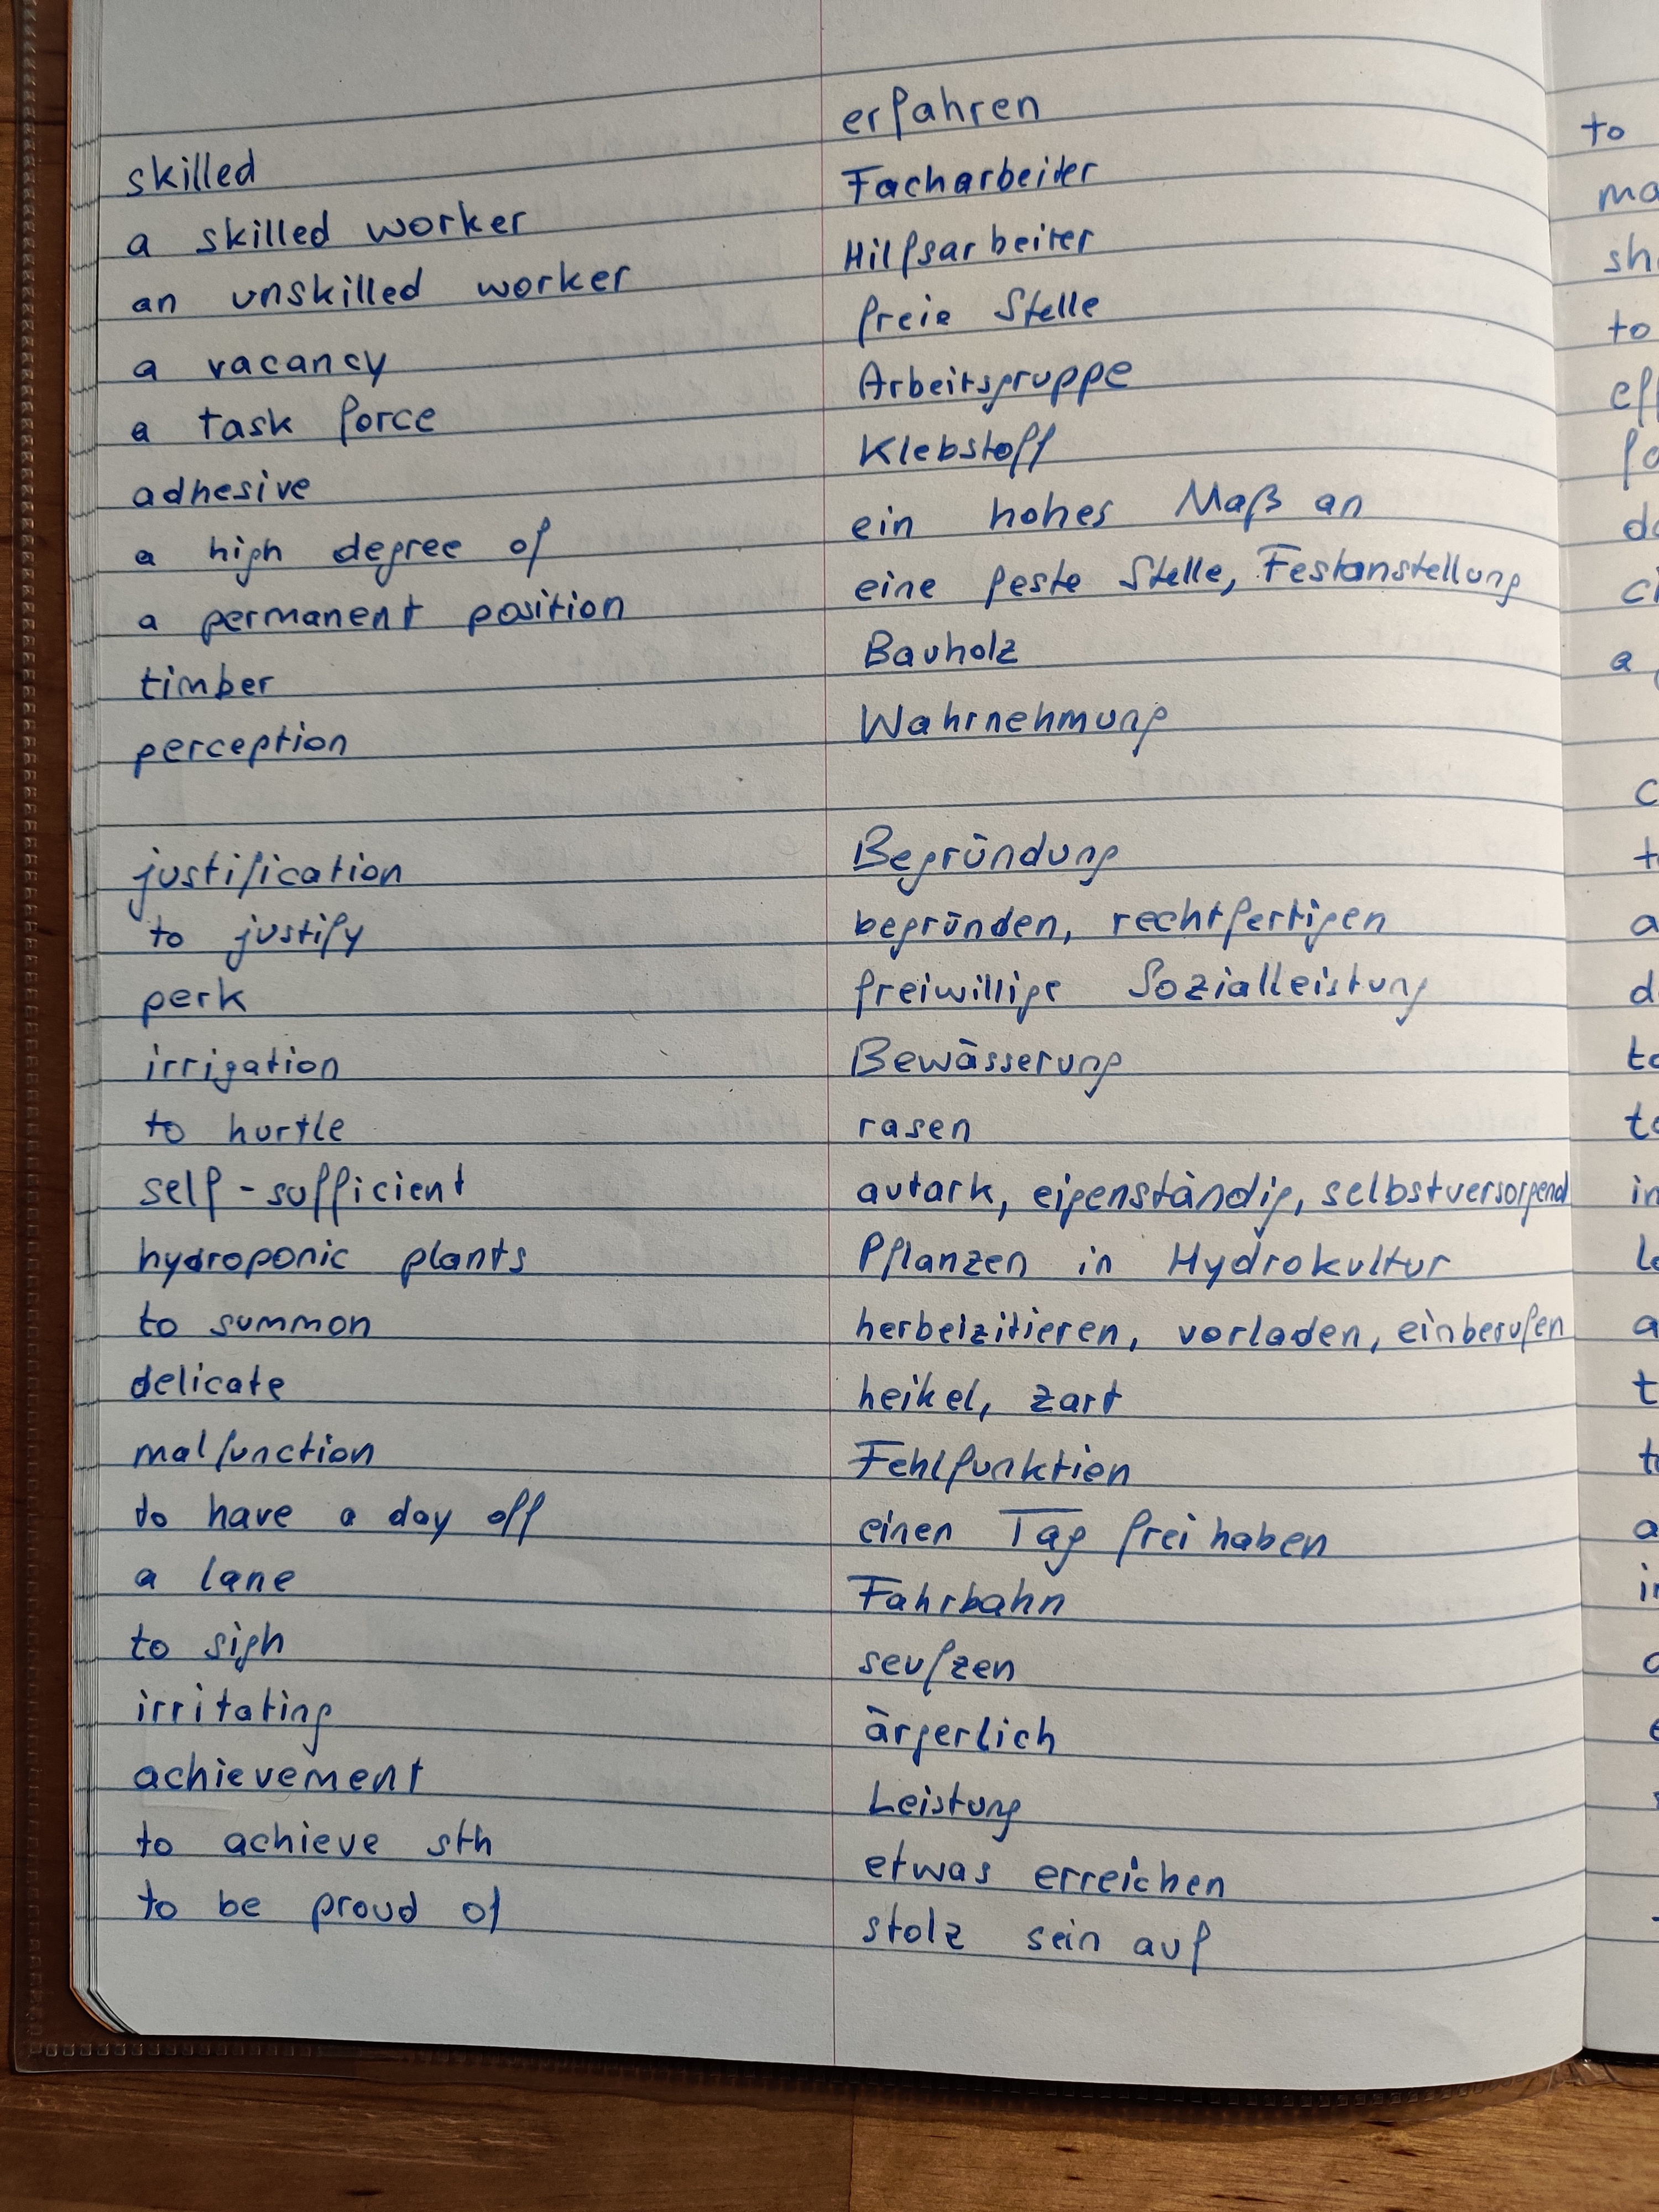 skilled erfahren
a skilled worker Facharbeiter
an unskilled worker Hilfsarbeiter
a vacancy freie Stelle
a task force Arbeitsgruppe
adhesive Klebstoff
a high degree of ein hohes Maß an
a permanent position eine feste Stelle, Festanstellung
timber Bauholz
perception Wahrnehmung
justification Begründung
to justify begründen, rechtfertigen
perk freiwillige Sozialleistung
irrigation Bewässerung
to hurtle rasen
self-sufficient autark, eigenständig, selbstversorgend
hydroponic plants Pflanzen in Hydrokultur
to summon herbeizitieren, vorladen, einberufen
delicate heikel, zart
malfunction Fehlfunktion
to have a day off einen Tag frei haben
a lane Fahrbahn
to sigh seufzen
irritating ärgerlich
achievement Leistung
to achieve sth etwas erreichen
to be proud of stolz sein auf
to
to
a